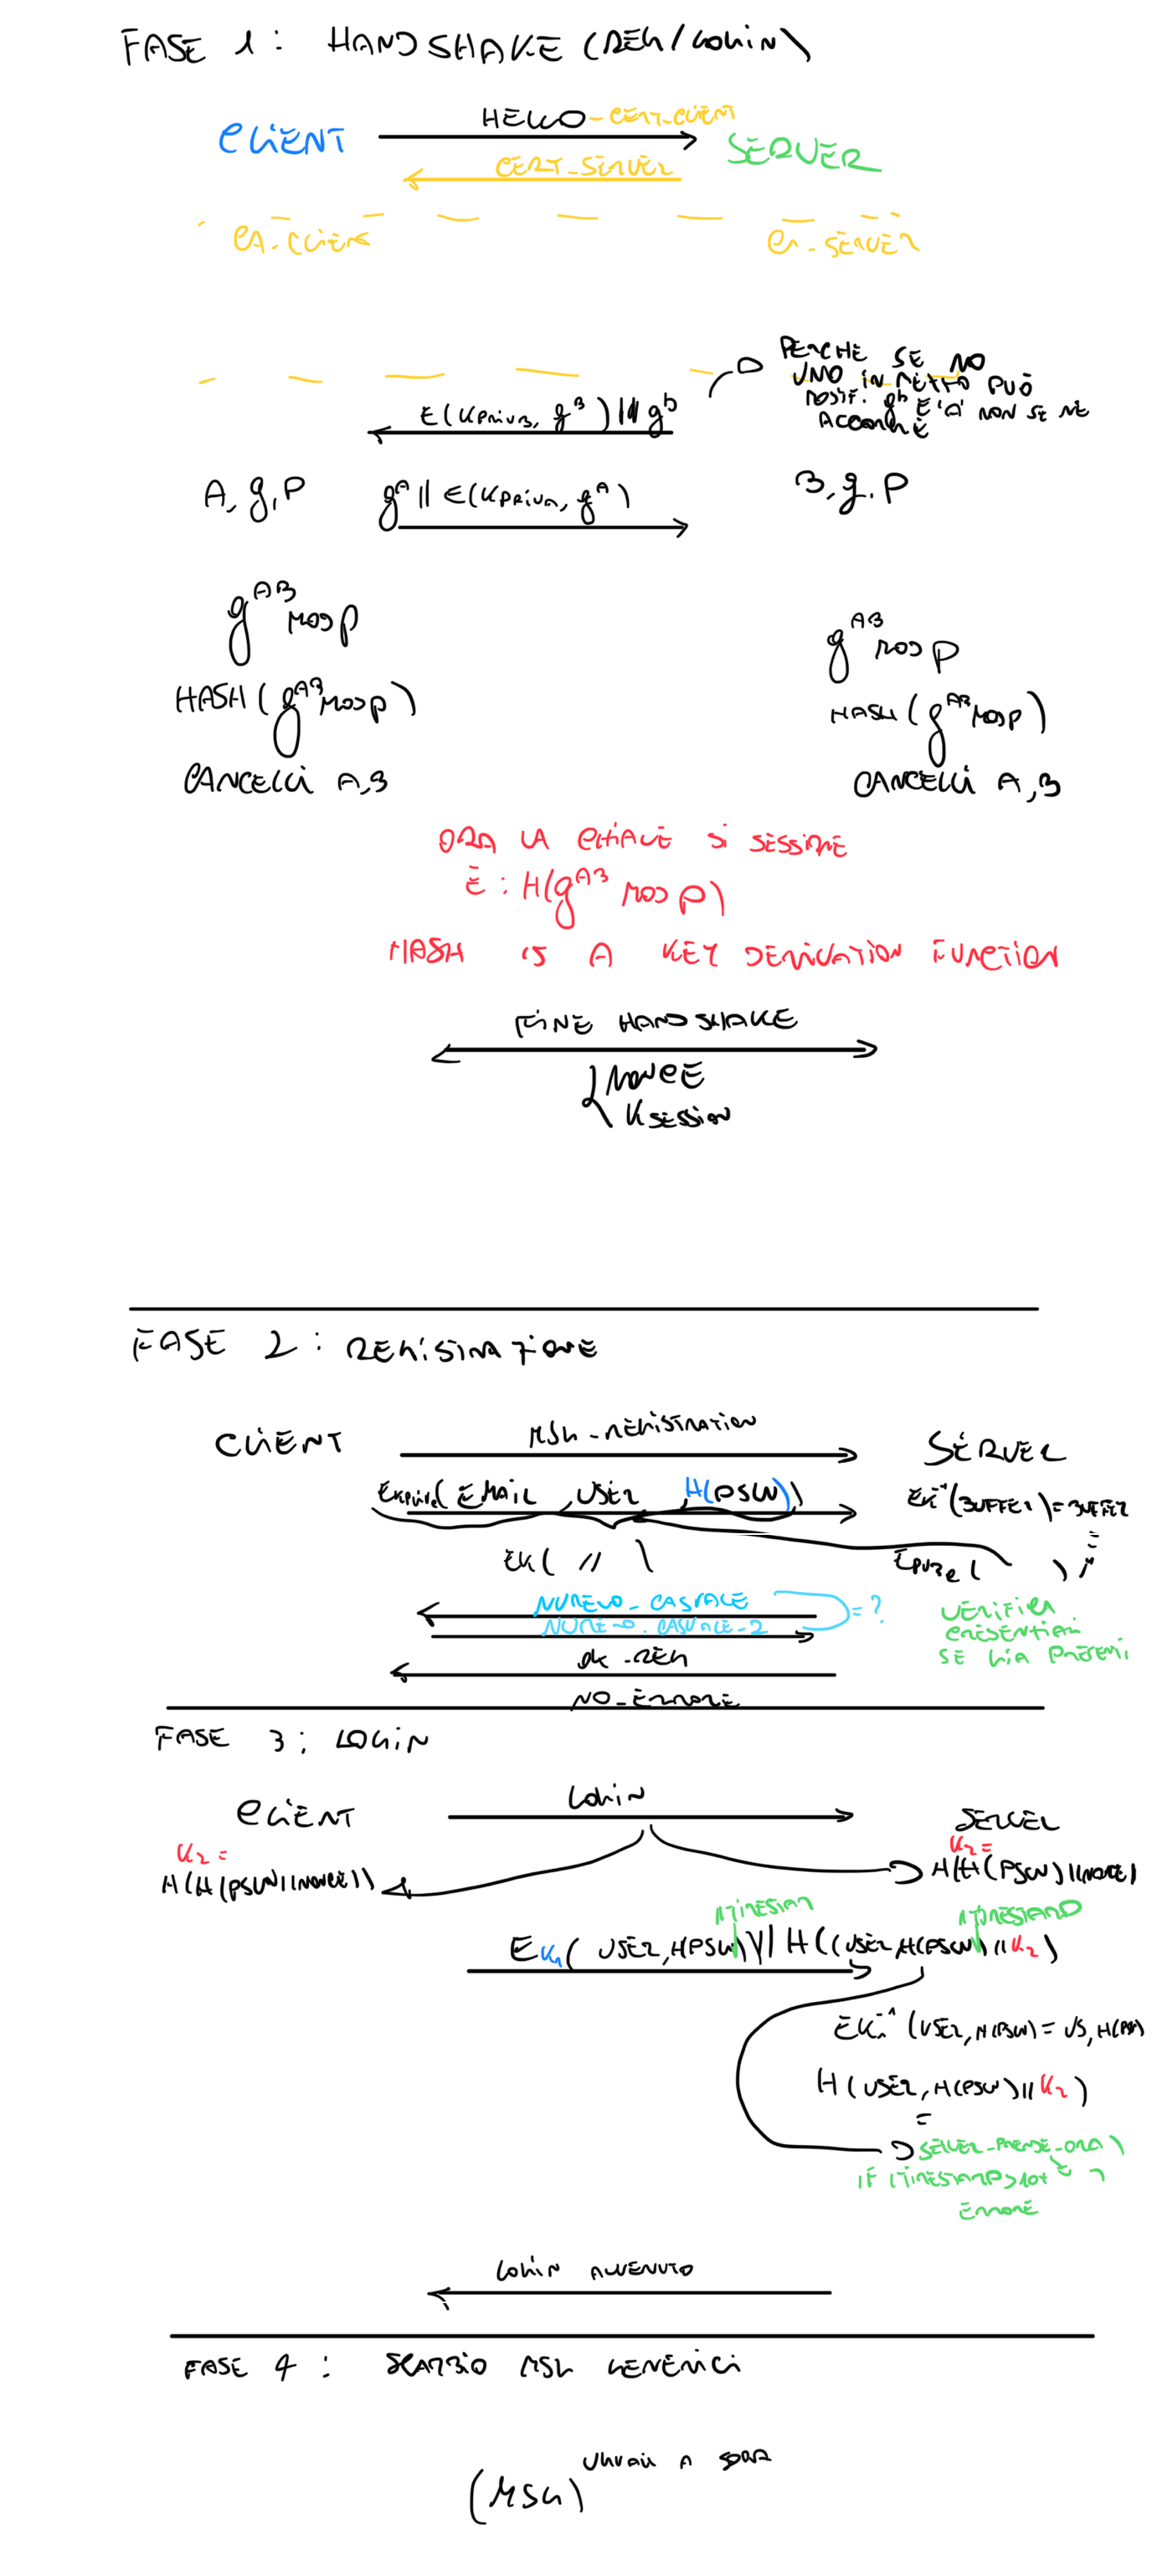 FASE 1: HANDSHAKE (REG/LOGIN)
HELLO - CERT_CLIENT
CLIENT
SERVER
CERT_SERVER
CA_CLIENT
CA_SERVER
PERCHÈ SE NO
UNO IN MEZZO PUÒ
MODIF. g^b E 'a' NON SE NE
ACCORGE
E(KPRIVB, g^B) || g^b
A, g, P
g^A || E(KPRIVA, g^A)
B, g, P
g^AB MOD P
g^AB MOD P
HASH(g^AB MOD P)
HASH(g^AB MOD P)
CANCELLI A,B
CANCELLI A,B
ORA LA CHIAVE DI SESSIONE
È: H(g^AB MOD P)
HASH IS A KEY DERIVATION FUNCTION
FINE HANDSHAKE
{ NONCE
K SESSION
FASE 2: REGISTRAZIONE
CLIENT
MSG_REGISTRATION
SERVER
( EMAIL, USER, H(PSW))
EK^-1(BUFFER) = BUFFER
EK( // )
NUMERO_CASUALE
= ?
NUMERO_CASUALE_2
VERIFICA
SE GIA PRESENTI
OK_REG
NO_ERRORE
FASE 3: LOGIN
CLIENT
LOGIN
SERVER
K2 =
K2 =
H(H(PSW)||NONCE))
H(H(PSW)||NONCE)
TIMESTAMP
EK1( USER, H(PSW))|| H((USER, H(PSW)||K2)
EK^-1(USER, H(PSW) = US, H(PSW)
H(USER, H(PSW)||K2)
=
SERVER_PRENDE_ORA)
IF (TIMESTAMP>
ERRORE
LOGIN AVVENUTO
FASE 4: SCAMBIO MSG GENERICI
(MSG) UGUALI A SOPRA